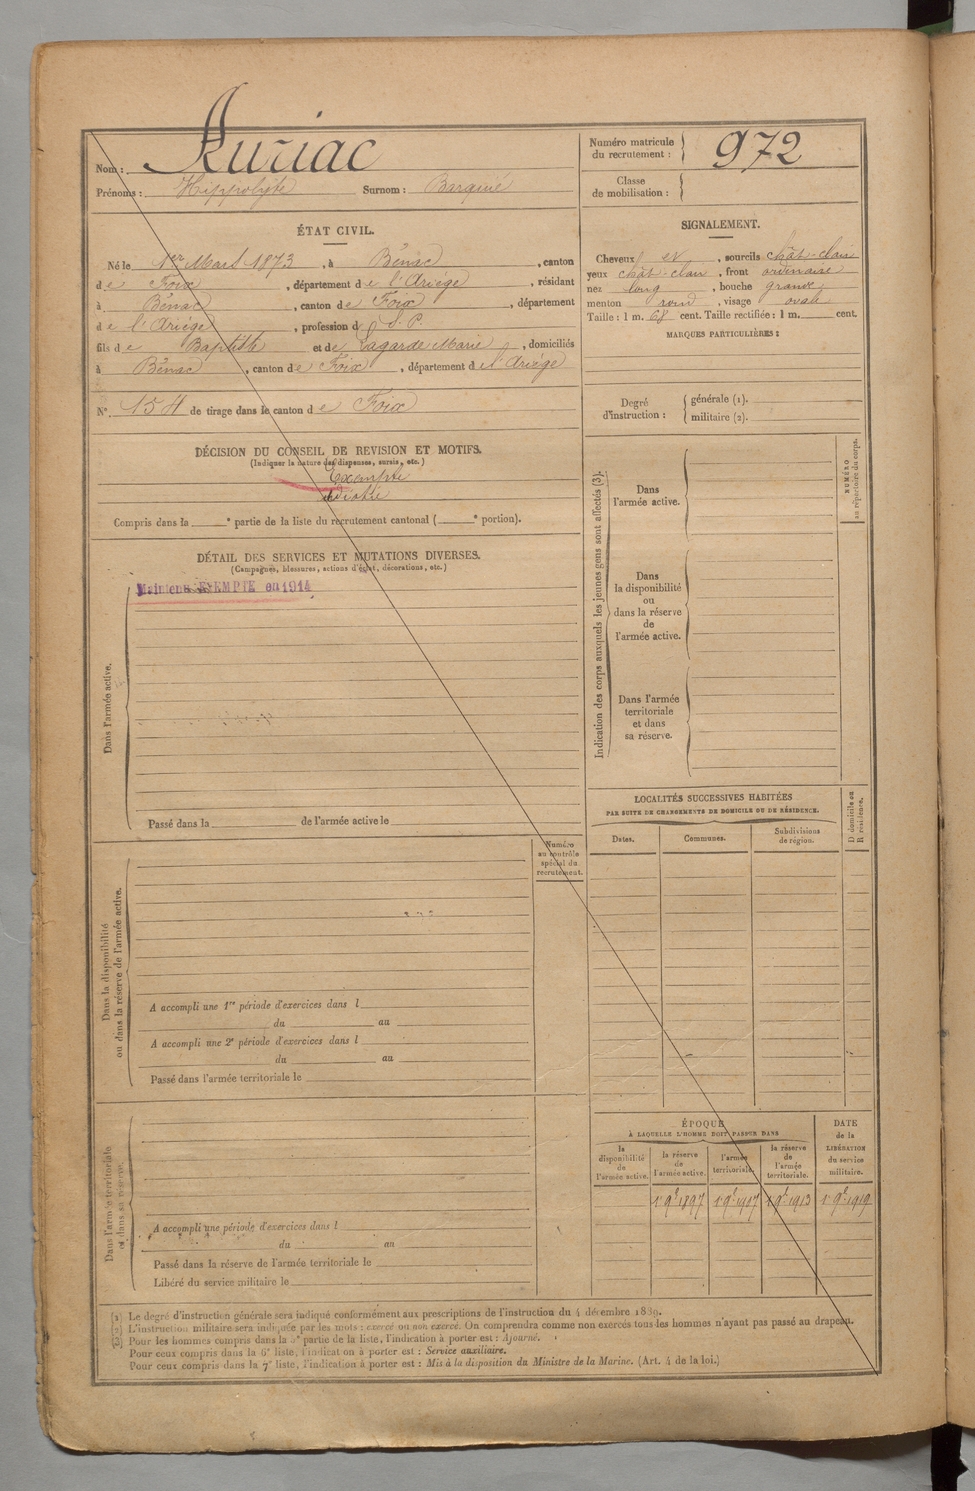 Nom : Auriac
Prénoms : Hippolyte Surnom : Barquié
Numéro matricule du recrutement : 972
Classe de mobilisation :
ÉTAT CIVIL.
Né le 1er Mars 1873, à Bénac, canton
de Foix, département de l'Ariége, résidant
à Bénac, canton de Foix, département
de l'Ariége, profession d S. P.
fils de Baptiste et de Lagarde Marie, domiciliés
à Bénac, canton de Foix, département de l'Ariége
N° 154 de tirage dans le canton de Foix
SIGNALEMENT.
Cheveux et, sourcils chât-clair
yeux chât-clair, front ordinaire
nez long, bouche grande
menton rond, visage ovale
Taille : 1 m. 68 cent. Taille rectifiée : 1 m. cent.
MARQUES PARTICULIÈRES :
Degré d'instruction : générale (1).
militaire (2).
DÉCISION DU CONSEIL DE REVISION ET MOTIFS.
(Indiquer la nature des dispenses, sursis, etc.)
Exempté
Compris dans la e partie de la liste du recrutement cantonal ( e portion).
DÉTAIL DES SERVICES ET MUTATIONS DIVERSES.
(Campagnes, blessures, actions d'éclat, décorations, etc.)
Maintenu EXEMPTE en 1914
Dans l'armée active.
Passé dans la de l'armée active le
Numéro au contrôle spécial du recrutement.
Dans la disponibilité ou dans la réserve de l'armée active.
A accompli une 1re période d'exercices dans l
du au
A accompli une 2e période d'exercices dans l
du au
Passé dans l'armée territoriale le
Dans l'armée territoriale et dans sa réserve.
A accompli une période d'exercices dans l
du au
Passé dans la réserve de l'armée territoriale le
Libéré du service militaire le
Indication des corps auxquels les jeunes gens sont affectés (3).
NUMÉRO au répertoire du corps.
Dans l'armée active.
Dans la disponibilité ou dans la réserve de l'armée active.
Dans l'armée territoriale et dans sa réserve.
LOCALITÉS SUCCESSIVES HABITÉES
PAR SUITE DE CHANGEMENTS DE DOMICILE OU DE RÉSIDENCE.
Dates. Communes. Subdivisions de région. D domicile ou R résidence.
ÉPOQUE
À LAQUELLE L'HOMME DOIT PASSER DANS
la disponibilité de l'armée active. la réserve de l'armée active. l'armée territoriale. la réserve de l'armée territoriale. DATE de la LIBÉRATION du service militaire.
1 9bre 1897 1 9bre 1917 1 9bre 1913 1 9bre 1919
(1) Le degré d'instruction générale sera indiqué conformément aux prescriptions de l'instruction du 4 décembre 1889.
(2) L'instruction militaire sera indiquée par les mots : exercé ou non exercé. On comprendra comme non exercés tous les hommes n'ayant pas passé au drapeau.
(3) Pour les hommes compris dans la 5e partie de la liste, l'indication à porter est : Ajourné.
Pour ceux compris dans la 6e liste, l'indication à porter est : Service auxiliaire.
Pour ceux compris dans la 7e liste, l'indication à porter est : Mis à la disposition du Ministre de la Marine. (Art. 4 de la loi.)